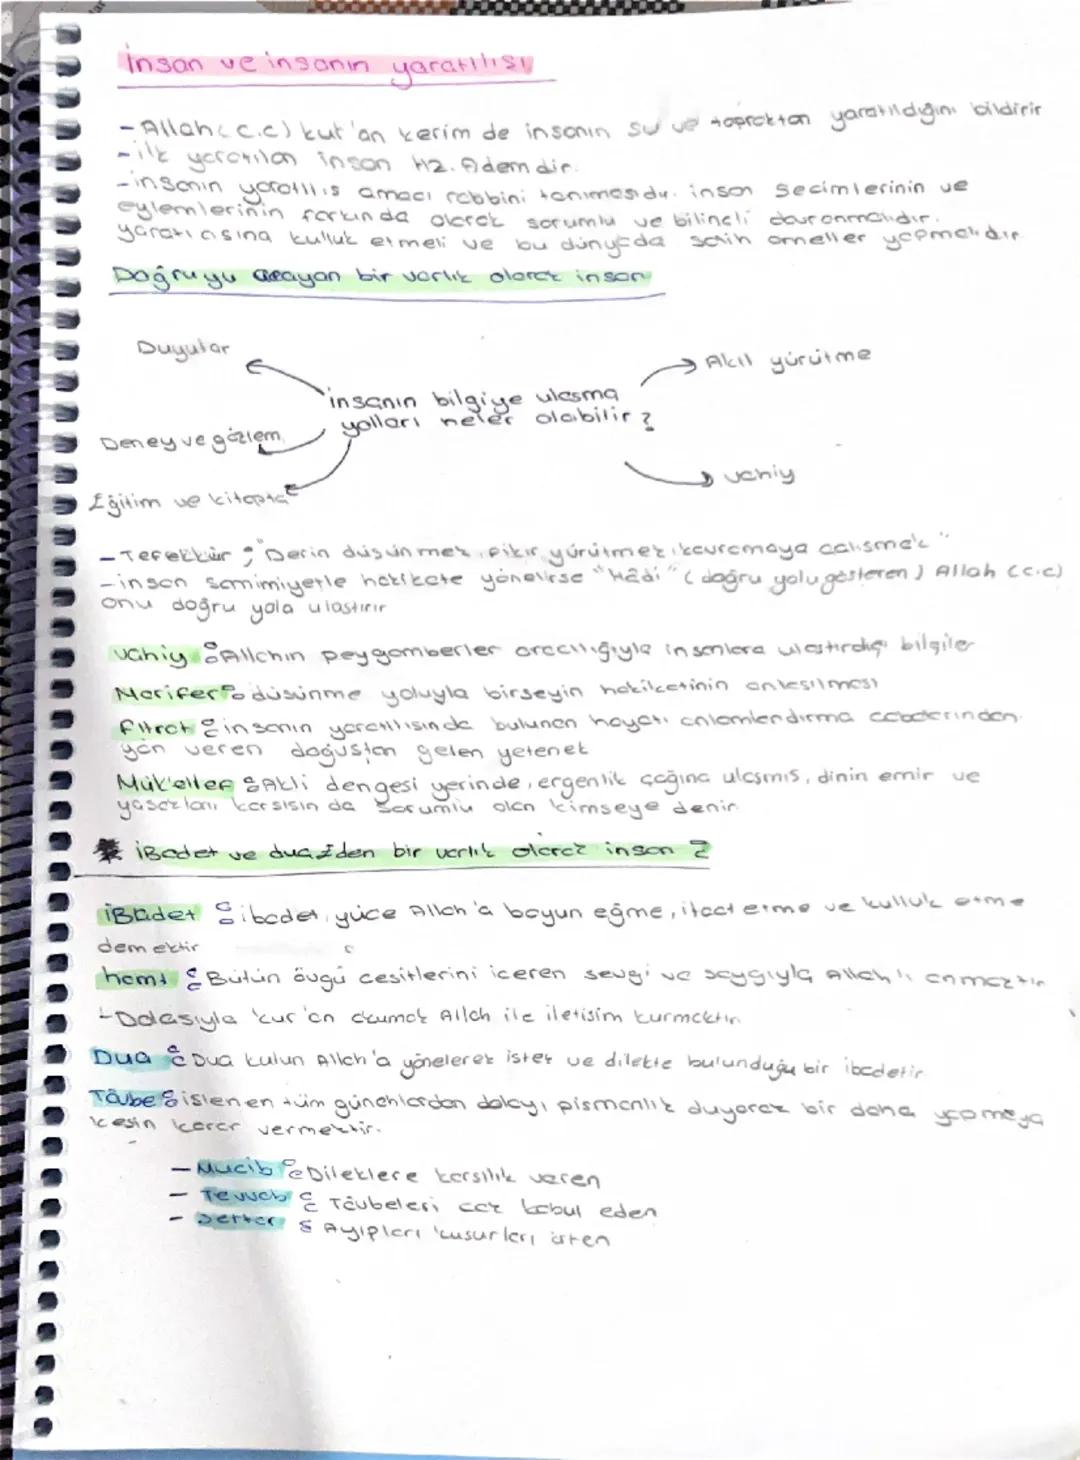 İnsan ve insanın yaratılışı
- Allah (c.c) kur'an kerim de insanın su ve topraktan yaratıldığını bildirir
- ilk yaratılan insan Hz. Adem dir.
- insanın yaratılış amacı rabbini tanımasıdır. insan Secimlerinin ve
eylemlerinin farkında olarak sorumlu ve bilinçli davranmalıdır.
yaratıcısına kulluk etmeli ve bu dünyada salih ameller yapmalıdır
Doğruyu arayan bir varlık olarak insan
Duyular
Akıl yürütme
insanın bilgiye ulaşma
yolları neler olabilir?
Deney ve gözlem
vahiy
Eğitim ve kitapta
- Tefekkür ; "Derin düşünmek, fikir yürütmek, kavramaya calısmak"
- insan samimiyetle hakikate yönelirse "Hâdi" (doğru yolu gösteren) Allah (c.c)
onu doğru yola ulastırır
Vahiy : Allahın peygamberler aracılığıyla insanlara ulastırdığı bilgiler
Marifet : düsünme yoluyla birseyin hakikatinin anlasılması
fıtrat : insanın yaratılısında bulunan hayatı anlamlandırma cabalarından
yön veren doğuştan gelen yetenek
Mükellef : Akli dengesi yerinde, ergenlik çağına ulaşmış, dinin emir ve
yasakları karsısın da sorumlu olan kimseye denir
* İBadet ve dua Eden bir varlık olarak insan :
İBadet : ibadet, yüce Allah'a boyun eğme, itaat etme ve kulluk etme
demektir
hamt : Bütün övgü cesitlerini iceren sevgi ve saygıyla Allah'ı anmaktır
Dolasıyla kur'an okumak Allah ile iletisim kurmaktır
Dua : Dua kulun Allah'a yönelerek istek ve dilekte bulunduğu bir ibadetir
Tâube : islenen tüm günahlardan dolayı pismanlık duyarak bir daha yapmaya
kesin karar vermektir.
- Mucib : Dileklere karsılık veren
- Tevvab : Tâubeleri cok kabul eden
- Settar : Ayıpları kusurları örten